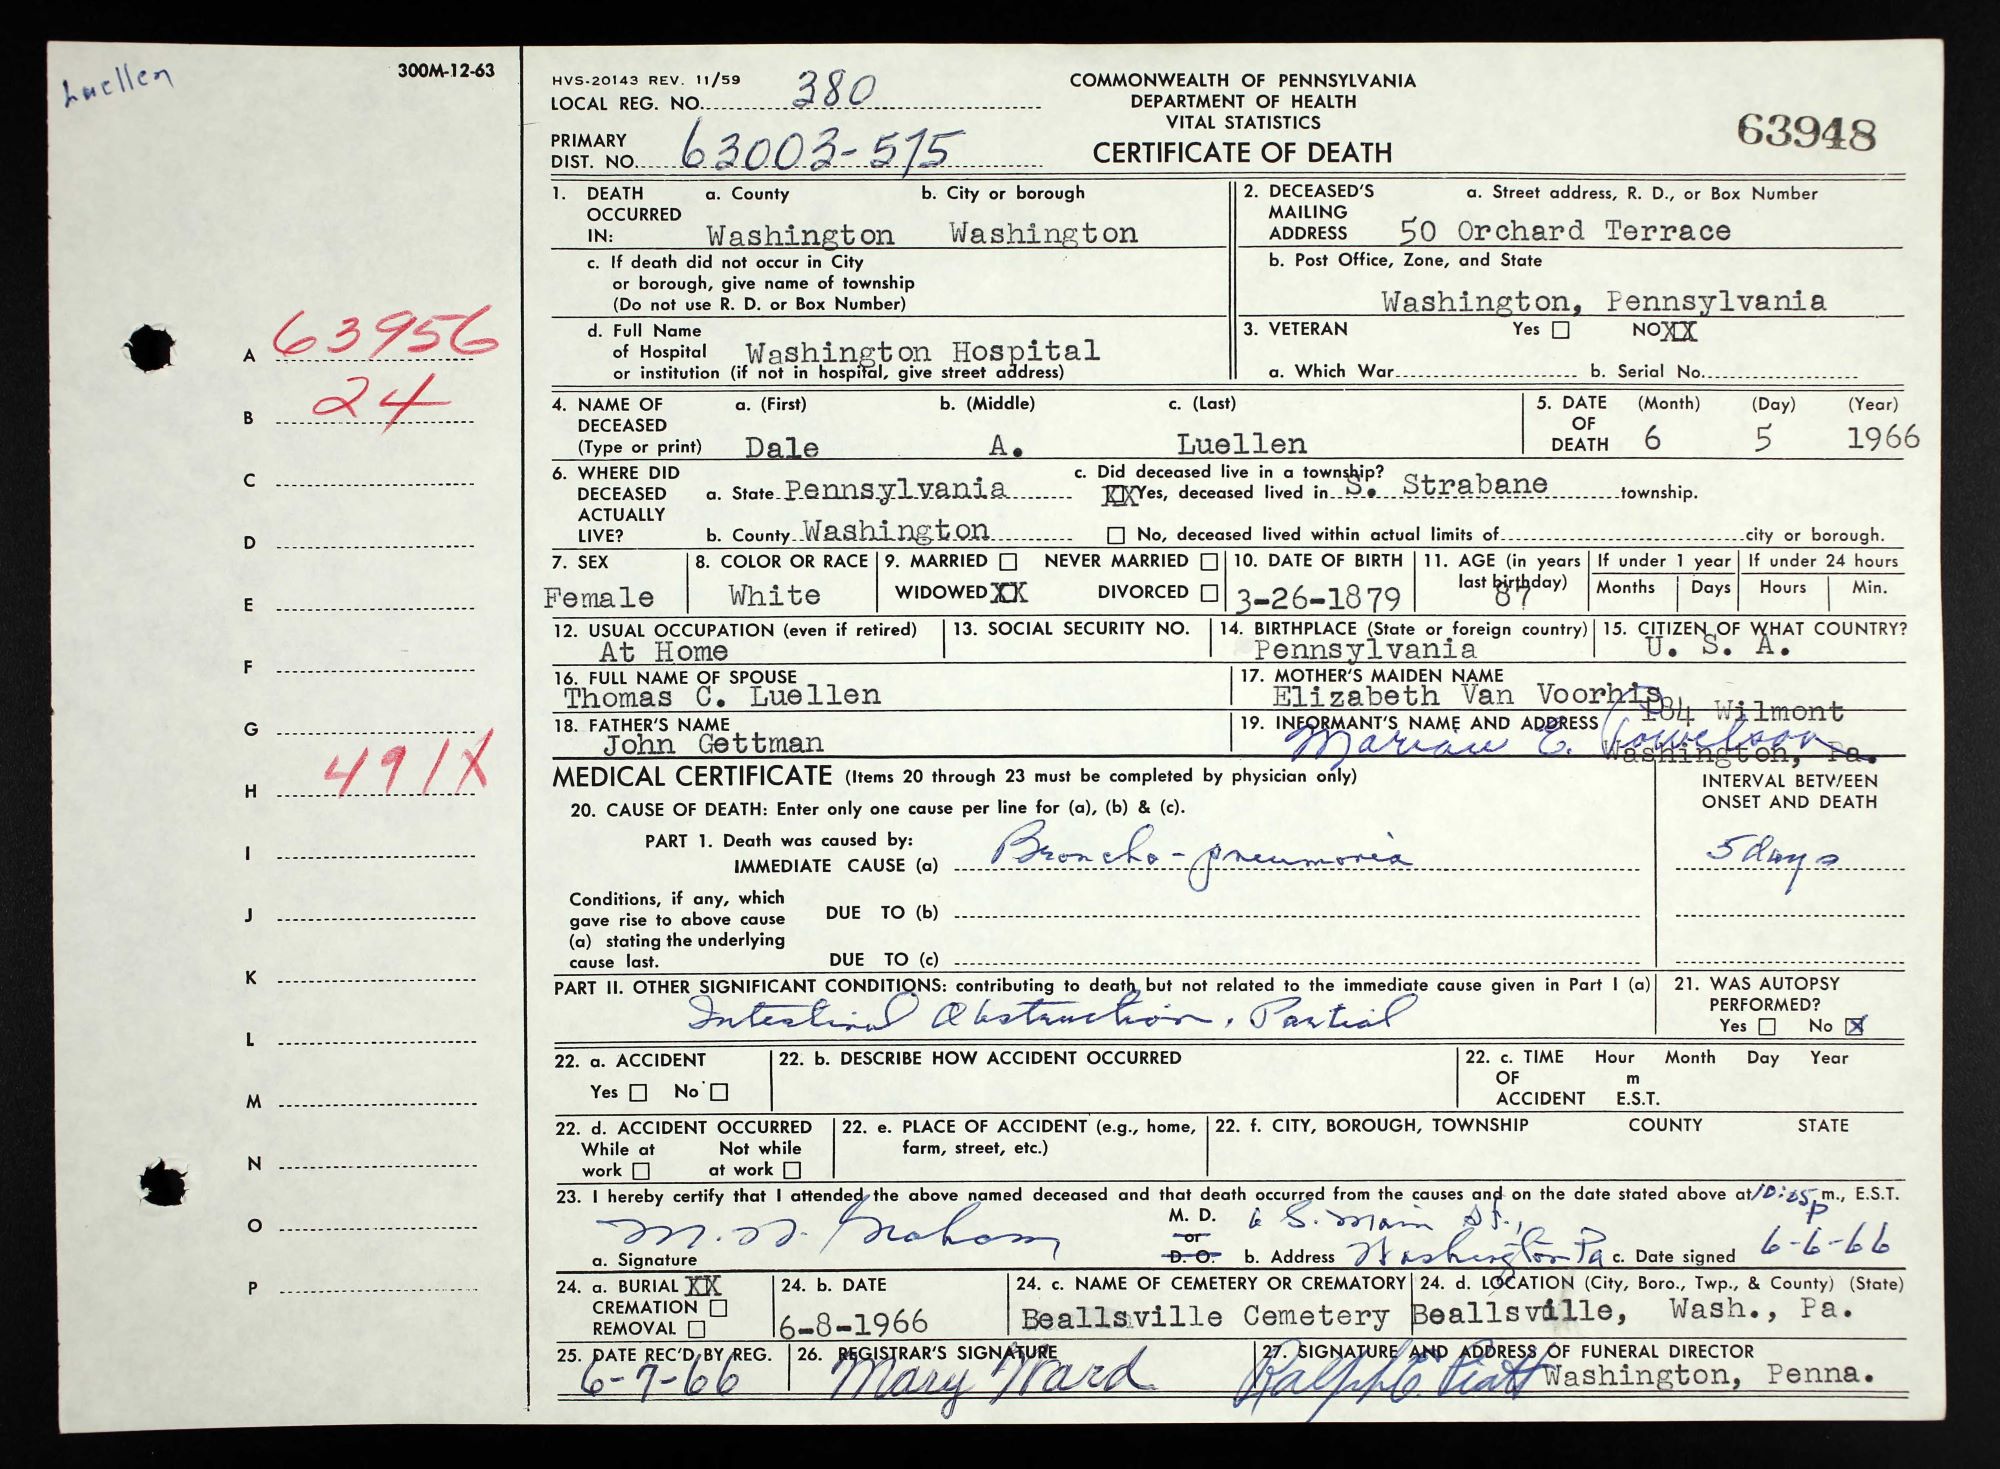 Luellen
300M-12-63
HVS-20143 REV. 11/59
LOCAL REG. NO. 380
PRIMARY
DIST. NO. 63003-575
COMMONWEALTH OF PENNSYLVANIA
DEPARTMENT OF HEALTH
VITAL STATISTICS
CERTIFICATE OF DEATH
63948
A 63956
B 24
C
D
E
F
G
H 491X
I
J
K
L
M
N
O
P
1. DEATH OCCURRED IN: a. County Washington b. City or borough Washington
c. If death did not occur in City
or borough, give name of township
(Do not use R. D. or Box Number)
d. Full Name
of Hospital Washington Hospital
or institution (if not in hospital, give street address)
2. DECEASED'S MAILING ADDRESS a. Street address, R. D., or Box Number
50 Orchard Terrace
b. Post Office, Zone, and State
Washington, Pennsylvania
3. VETERAN Yes NO XX
a. Which War b. Serial No.
4. NAME OF DECEASED (Type or print) a. (First) Dale b. (Middle) A. c. (Last) Luellen
5. DATE OF DEATH (Month) 6 (Day) 5 (Year) 1966
6. WHERE DID DECEASED ACTUALLY LIVE? a. State Pennsylvania
b. County Washington
c. Did deceased live in a township?
XX Yes, deceased lived in S. Strabane township.
No, deceased lived within actual limits of city or borough.
7. SEX Female
8. COLOR OR RACE White
9. MARRIED NEVER MARRIED
WIDOWED XX DIVORCED
10. DATE OF BIRTH 3-26-1879
11. AGE (in years last birthday) 87
If under 1 year Months Days
If under 24 hours Hours Min.
12. USUAL OCCUPATION (even if retired) At Home
13. SOCIAL SECURITY NO.
14. BIRTHPLACE (State or foreign country) Pennsylvania
15. CITIZEN OF WHAT COUNTRY? U. S. A.
16. FULL NAME OF SPOUSE
Thomas C. Luellen
17. MOTHER'S MAIDEN NAME
Elizabeth Van Voorhis
18. FATHER'S NAME
John Gettman
19. INFORMANT'S NAME AND ADDRESS 184 Wilmont
Marian E. Powelson Washington, Pa.
MEDICAL CERTIFICATE (Items 20 through 23 must be completed by physician only)
INTERVAL BETWEEN
ONSET AND DEATH
20. CAUSE OF DEATH: Enter only one cause per line for (a), (b) & (c).
PART 1. Death was caused by:
IMMEDIATE CAUSE (a) Broncho-pneumonia 5 days
Conditions, if any, which
gave rise to above cause
(a) stating the underlying
cause last.
DUE TO (b)
DUE TO (c)
PART II. OTHER SIGNIFICANT CONDITIONS: contributing to death but not related to the immediate cause given in Part I (a)
Intestinal Obstruction, Partial
21. WAS AUTOPSY PERFORMED?
Yes No X
22. a. ACCIDENT
Yes No
22. b. DESCRIBE HOW ACCIDENT OCCURRED
22. c. TIME OF ACCIDENT Hour Month Day Year
m
E.S.T.
22. d. ACCIDENT OCCURRED
While at work Not while at work
22. e. PLACE OF ACCIDENT (e.g., home,
farm, street, etc.)
22. f. CITY, BOROUGH, TOWNSHIP COUNTY STATE
23. I hereby certify that I attended the above named deceased and that death occurred from the causes and on the date stated above at 10:05 p m., E.S.T.
a. Signature Graham
M. D. or D. O.
b. Address 6 S. Main St., Washington Pa
c. Date signed 6-6-66
24. a. BURIAL XX
CREMATION
REMOVAL
24. b. DATE
6-8-1966
24. c. NAME OF CEMETERY OR CREMATORY
Beallsville Cemetery
24. d. LOCATION (City, Boro., Twp., & County) (State)
Beallsville, Wash., Pa.
25. DATE REC'D BY REG.
6-7-66
26. REGISTRAR'S SIGNATURE
Mary Ward
27. SIGNATURE AND ADDRESS OF FUNERAL DIRECTOR
Ralph E. Piatt Washington, Penna.